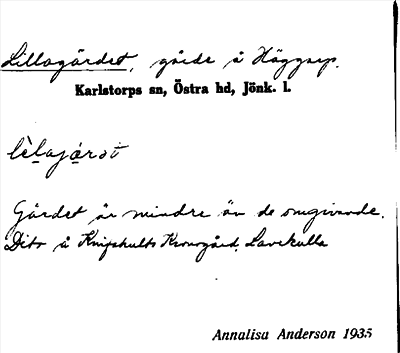 Lillagärdet, gärde å Häggsep.
Karlstorps sn, Östra hd, Jönk. l.
Gärdet är mindre än de omgivande.
Dito å Knipshults Kronogård, Lavekulla
Annalisa Anderson 1935